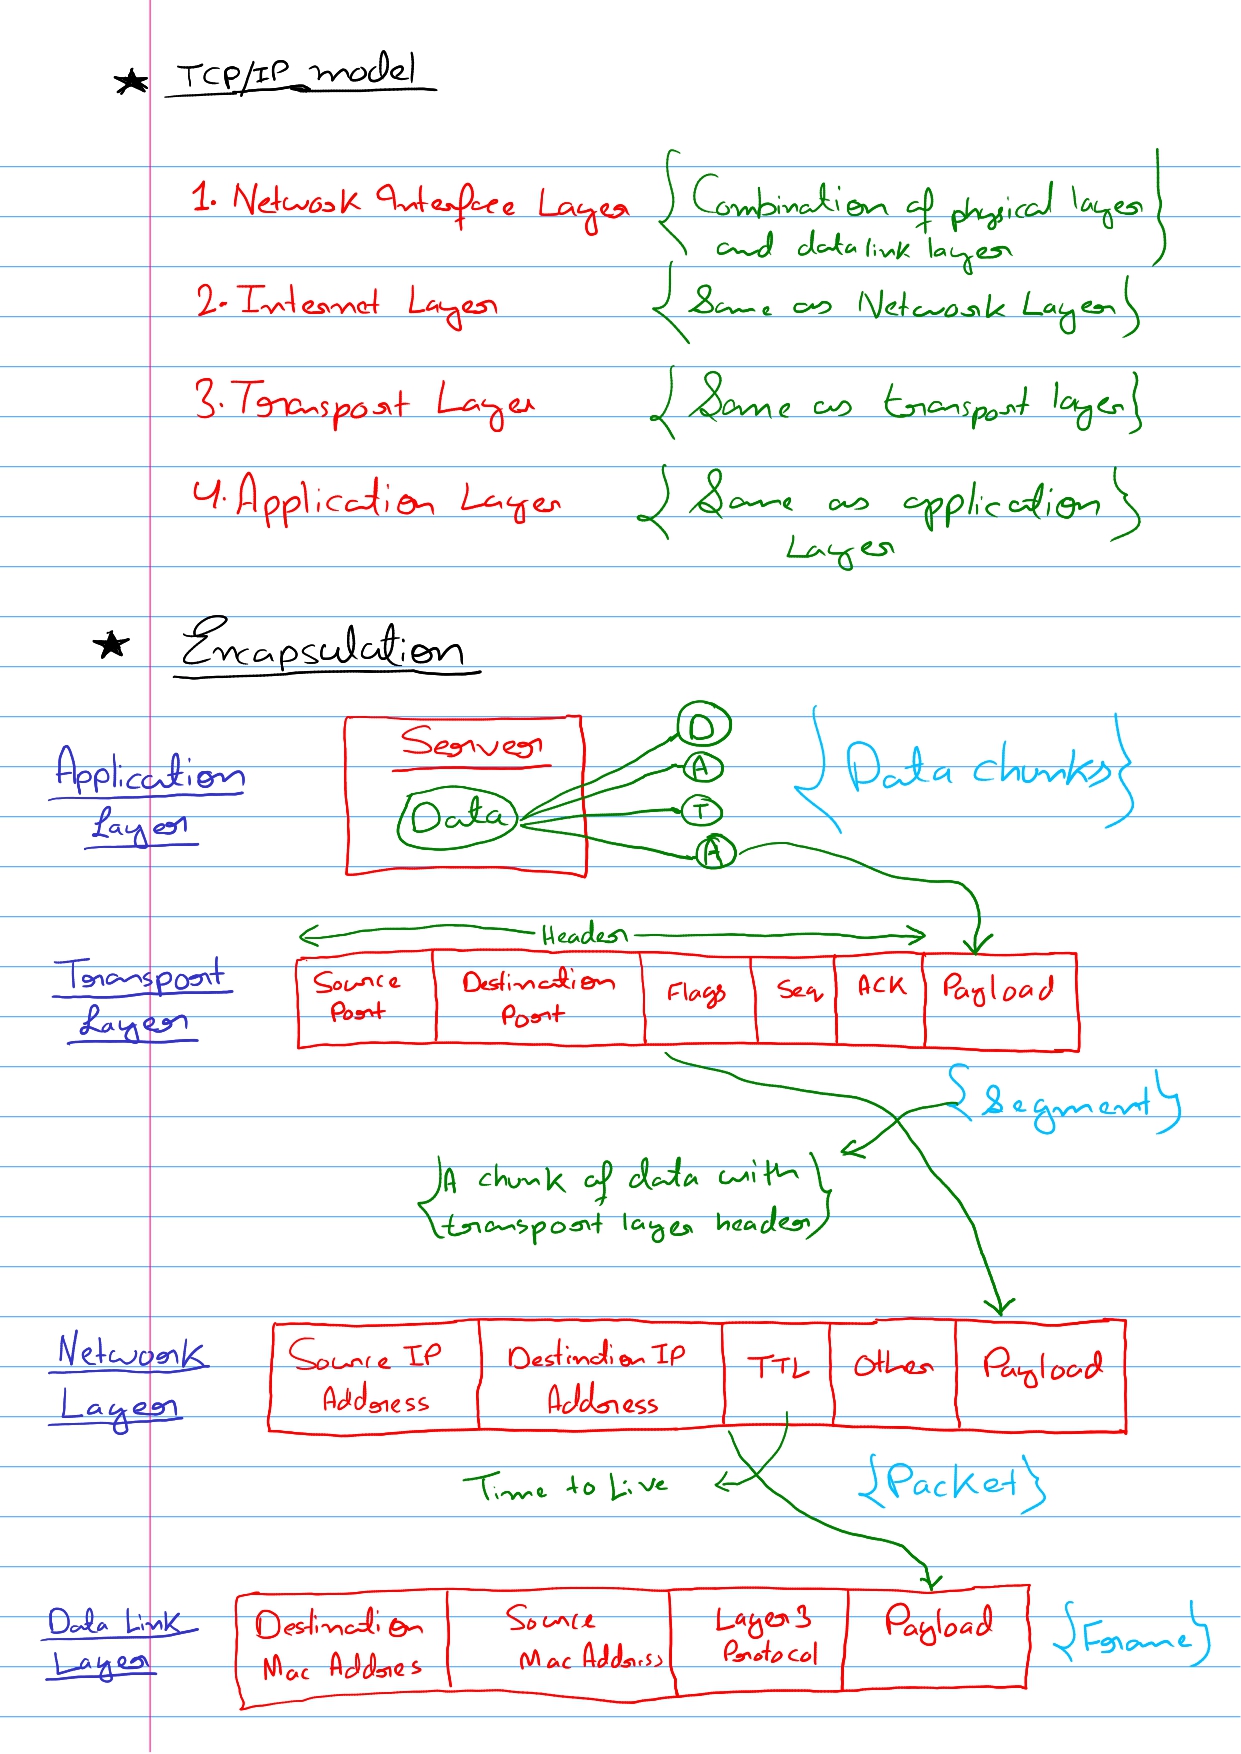 ★ TCP/IP model
1. Network Interface Layer { Combination of physical layer
and datalink layer }
2. Internet Layer { Same as Network Layer }
3. Transport Layer { Same as transport layer }
4. Application Layer { Same as application
Layer }
★ Encapsulation
Application
Layer
Server
Data
D
A
T
A
{ Data chunks }
Header
Transport
Layer
Source
Port
Destination
Port
Flags
Seq
ACK
Payload
{ Segment }
{ A chunk of data with
transport layer header }
Network
Layer
Source IP
Address
Destination IP
Address
TTL
Other
Payload
Time to Live
{ Packet }
Data Link
Layer
Destination
Mac Addres
Source
Mac Address
Layer 3
Protocol
Payload
{ Frame }